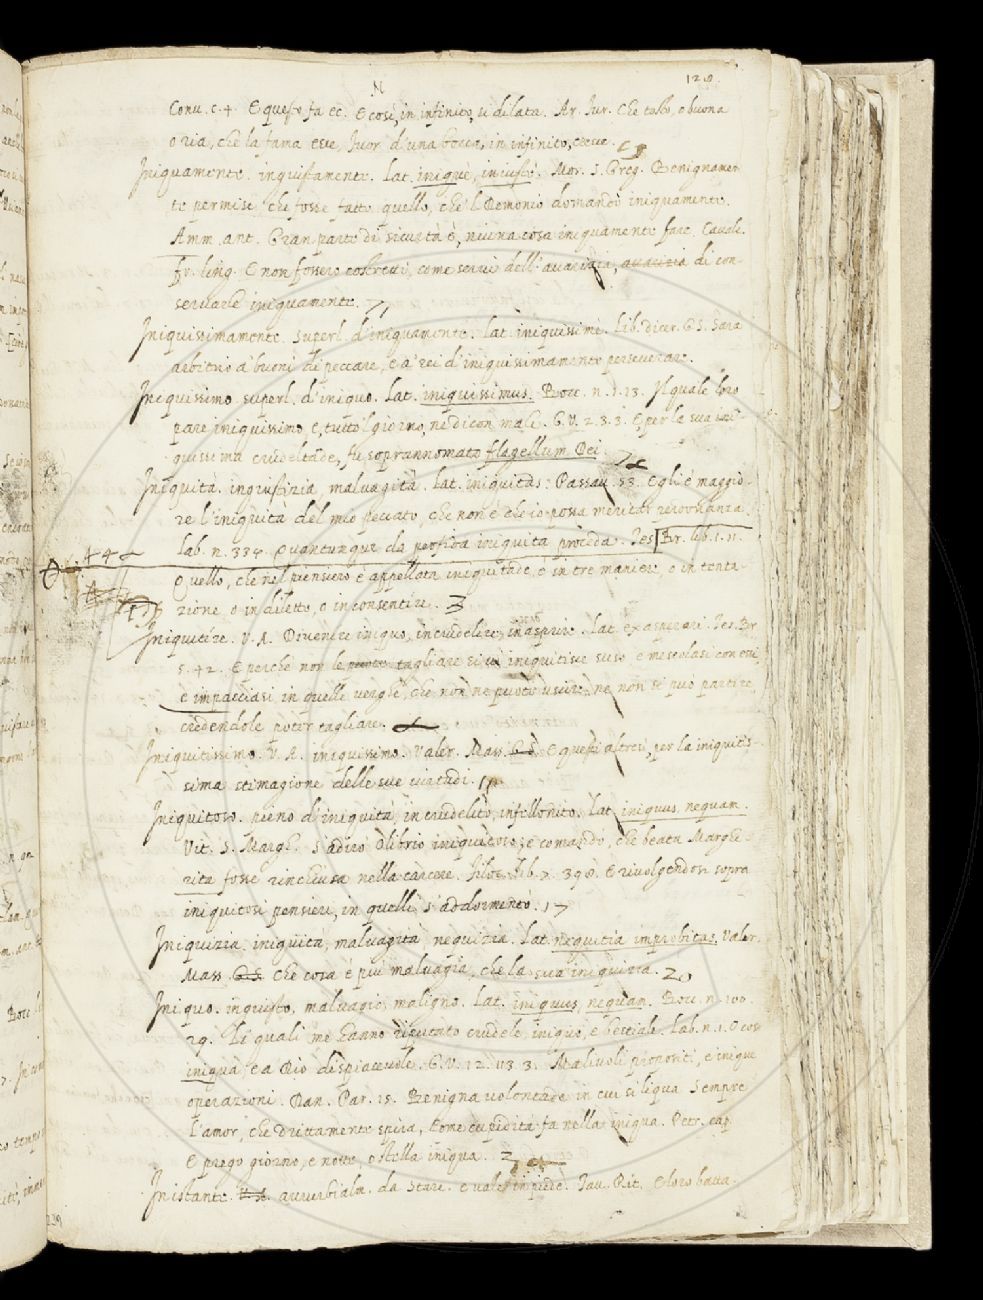 N
Conv. c. 4. E questo fa ec. E così, in infinito, si dilata. Ar. Fur. Che tosto, o buona
o ria, che la fama esce, fuor d'una bocca, in infinito, cresce.
Iniquamente. ingiustamente. Lat. iniquè, iniustè. Mor. S. Greg. Benignamen
te permise che fosse fatto quello, che 'l Demonio domandò iniquamente.
Amm. ant. Gran parte di sicurtà è, niuna cosa iniquamente fare. Cavalc.
fr. ling. E non fossero costretti, come servi dell' avarizia, avarizia di con-
servarle iniquamente.
Iniquissimamente. Superl. d'iniquamente. Lat. iniquissimè. Lib. dicer. G S. Darà
arbitrio a' buoni di peccare, e a' rei d'iniquissimamente perseverare.
Iniquissimo. superl. d'iniquo. Lat. iniquissimus. Bocc. n. 1. 13. Il quale loro
pare iniquissimo e, tutto 'l giorno, ne dicon male. G. V. 2. 3. 3. E, per la sua ini-
quissima crudeltade, fu soprannomato flagellum Dei.
Iniquità. ingiustizia, malvagità. Lat. iniquitas. Passav. 53. Egli è maggio-
re l'iniquità del mio peccato, che non è che io possa meritar perdonanza.
Lab. n. 334. Quantunque da perfida iniquità proceda. Tes. Br. lib. 1. 11.
Quello, che nel pensiero è appellata iniquitade, è in tre maniere, o in tenta-
zione, o in diletto, o in consentire.
Iniquitire. V. A. Divenire iniquo, incrudelire, inasprire. Lat. exasperari. Tes. Br
5. 42. E perchè non le tagliare si iniquitisce suso e mescolasi con essi,
e impacciasi in quelle verghe, che non ne puote uscire, nè non si può partire,
credendole poter tagliare.
Iniquitissimo. V. A. iniquissimo. Valer. Mass. G S. E questi altresì, per la iniquitis-
sima stimagione delle sue virtudi.
Iniquitoso. pieno d'iniquità, incrudelito, infellonito. Lat. iniquus, nequam.
Vit. S. Margh. S'adirò Olibrio iniquitoso, e comandò, che beata Marghe-
rita fosse rinchiusa nella carcere. Filoc. lib. 7. 390. E rivolgendosi sopra
iniquitosi pensieri, in quelli s'addormentò.
Iniquizia. iniquità, malvagità, nequizia. Lat. nequitia improbitas. Valer.
Mass. G S. Che cosa è più malvagia, che la sua iniquizia.
Iniquo. ingiusto, malvagio, maligno. Lat. iniquus, nequam. Bocc. n. 100.
29. Li quali me hanno riputato crudele, iniquo, e bestiale. Lab. n. 1. O cosa
iniqua, e a Dio dispiacevole. G. V. 12. 113. 3. Malivoli propositi, e inique
operazioni. Dan. Par. 15. Benigna volontade in cui si liqua Sempre
L'amor, che drittamente spira, Come cupidità fa nella iniqua. Petr. cap.
E prego giorno, e notte, o stella iniqua.
In istante. avverbialm. da Stare. e vale in piede. Tav. Rit. E loro batta-